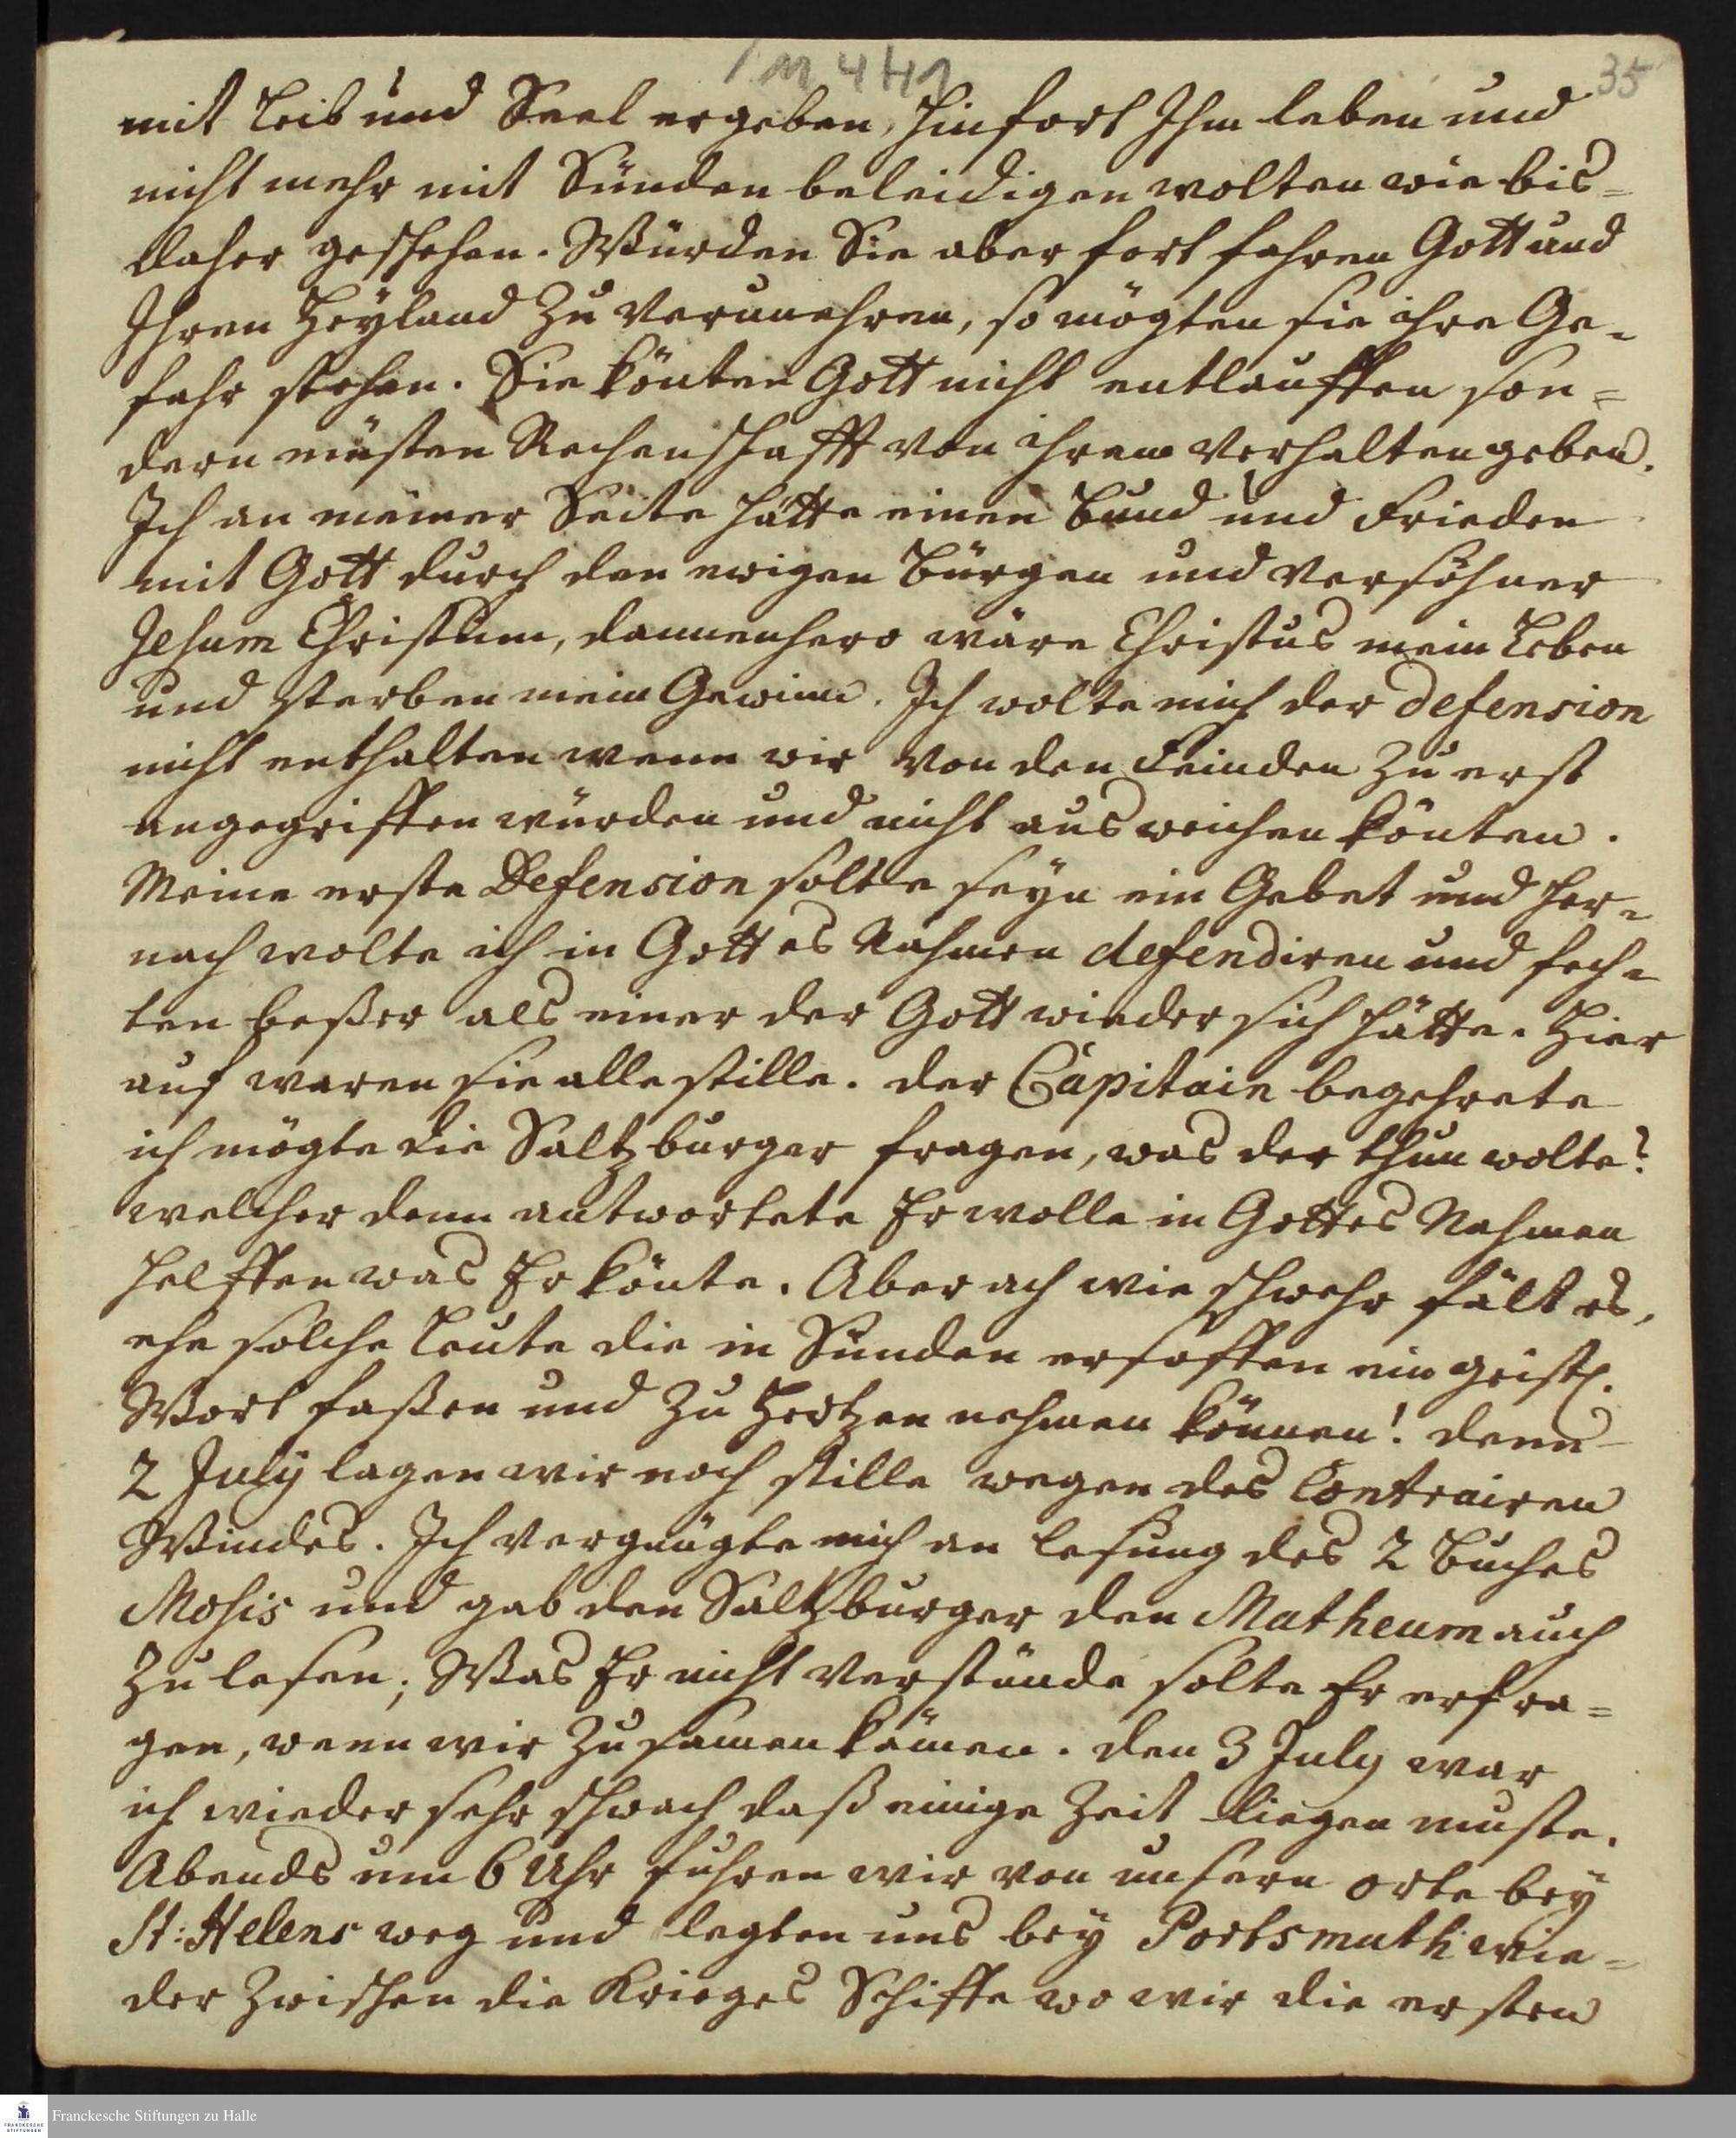 / M 4 H 1
35
mit Leib und Seel ergeben, hinfort Ihm leben und
nicht mehr mit Sünden beleidigen wolten wie bis-
daher geschehen. Würden Sie aber fort fahren Gott und
Ihren Heyland zu verunehren, so mögten sie ihre Ge-
fahr stehen. Sie könten Gott nicht entlauffen son-
dern müsten Rechenschafft von ihrem Verhalten geben.
Ich an meiner Seite hätte einen Bund und Frieden
mit Gott durch den ewigen Bürgen und Versöhner
Jesum Christum, dannenhero wäre Christus mein Leben
und sterben mein Gewinn. Ich wolte mich der defension
nicht enthalten wenn wir von den Feinden zu erst
angegriffen würden und nicht ausweichen könten.
Meine erste Defension solte seyn ein Gebet und her-
nach wolte ich in Gottes Nahmen defendiren und fech-
ten beßer als einer der Gott wieder sich hätte. Hier
auf waren sie alle stille. der Capitain begehrete
ich mögte die Saltzburger fragen, was der thun wolte?
welcher denn antwortete Er wolle in Gottes Nahmen
helffen was Er könte. Aber ach wie schwehr fält es,
ehe solche Leute die in Sünden ersoffen ein geistl.
Wort faßen und zu Hertzen nehmen können! denn
2 July lagen wir noch stille wegen des Contrairen
Windes. Ich vergnügte mich an lesung des 2 Buches
Mosis und gab den Saltzburger den Matheum auch
zu lesen; Was Er nicht verstünde solte Er erfra-
gen, wenn wir zusamen kämen. den 3 July war
ich wieder sehr schwach daß einige Zeit liegen muste.
Abends um 6 Uhr fuhren wir von unsern orte bey
St: Helens weg und legten uns bey Portsmuth wie-
der zwischen die Krieges Schiffe wo wir die ersten
Franckesche Stiftungen zu Halle
FRANCKESCHE
STIFTUNGEN